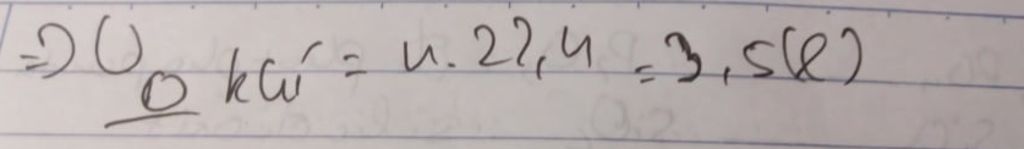 => V_O khí = n.22,4 = 3,5(l)